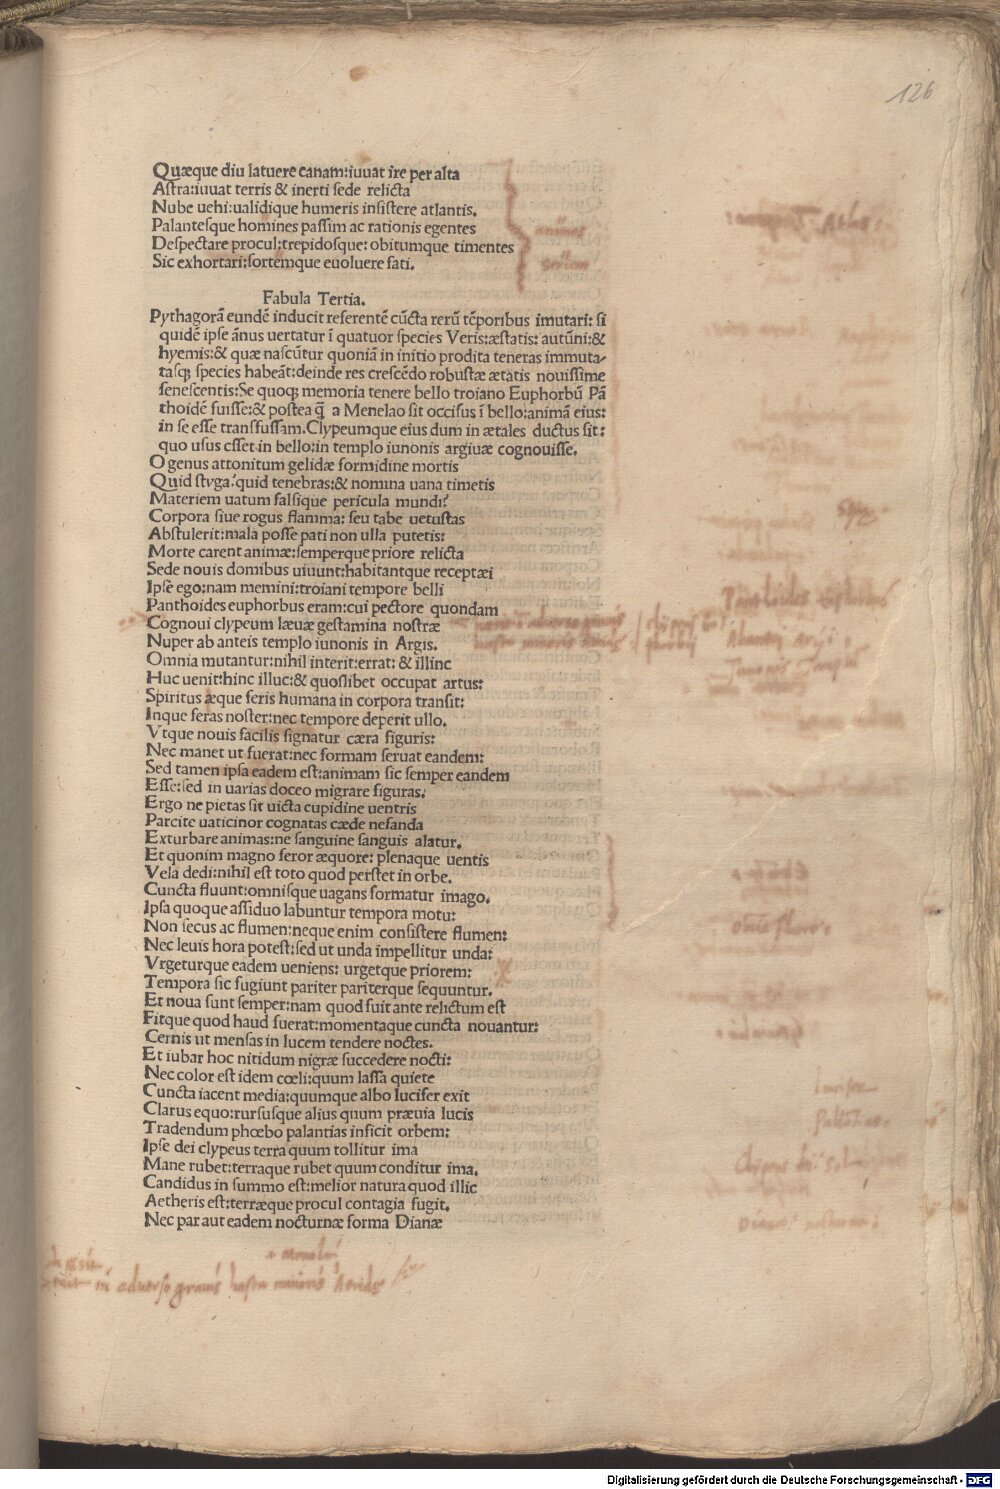 126
Quæque diu latuere canam:iuuat ire per alta
Astra:iuuat terris & inerti sede relicta
Nube uehi:ualidique humeris insistere atlantis.
Palantesque homines passim ac rationis egentes
Despectare procul:trepidosque: obitumque timentes
Sic exhortari:sortemque euoluere fati.
Fabula Tertia.
Pythagorā eundē inducit referentē cūcta rerū tēporibus imutari: si
quidē ipse ānus uertatur ī quatuor species Veris:æstatis: autūni:&
hyemis:& quæ nascūtur quoniā in initio prodita teneras immuta-
tasq; species habeāt:deinde res crescēdo robustæ ætatis nouissime
senescentis:Se quoq; memoria tenere bello troiano Euphorbū Pā
thoidē fuisse:& postea q̄ a Menelao sit occisus ī bello:animā eius:
in se esse transfussam.Clypeumque eius dum in ætales ductus sit:
quo usus esset in bello:in templo iunonis argiuæ cognouisse.
O genus attonitum gelidæ formidine mortis
Quid styga?quid tenebras:& nomina uana timetis
Materiem uatum falsique pericula mundi?
Corpora siue rogus flamma: seu tabe uetustas
Abstulerit:mala posse pati non ulla putetis:
Morte carent animæ:semperque priore relicta
Sede nouis domibus uiuunt:habitantque receptæi
Ipse ego:nam memini:troiani tempore belli
Panthoides euphorbus eram:cui pectore quondam
Cognoui clypeum læuæ gestamina nostræ
Nuper ab anteis templo iunonis in Argis.
Omnia mutantur:nihil interit:errat: & illinc
Huc uenit:hinc illuc:& quoslibet occupat artus:
Spiritus æque feris humana in corpora transit:
Inque feras noster:nec tempore deperit ullo.
Vtque nouis facilis signatur cæra figuris:
Nec manet ut fuerat:nec formam seruat eandem:
Sed tamen ipsa eadem est:animam sic semper eandem
Esse:sed in uarias doceo migrare figuras.
Ergo ne pietas sit uicta cupidine uentris
Parcite uaticinor cognatas cæde nefanda
Exturbare animas:ne sanguine sanguis alatur.
Et quonim magno feror æquore: plenaque uentis
Vela dedi:nihil est toto quod perstet in orbe.
Cuncta fluunt:omnisque uagans formatur imago.
Ipsa quoque assiduo labuntur tempora motu:
Non secus ac flumen:neque enim consistere flumen:
Nec leuis hora potest:sed ut unda impellitur unda:
Vrgeturque eadem ueniens: urgetque priorem:
Tempora sic fugiunt pariter pariterque sequuntur.
Et noua sunt semper:nam quod fuit ante relictum est
Fitque quod haud fuerat:momentaque cuncta nouantur:
Cernis ut mensas in lucem tendere noctes.
Et iubar hoc nitidum nigræ succedere nocti:
Nec color est idem cœli:quum lassa quiete
Cuncta iacent media:quumque albo lucifer exit
Clarus equo:rursusque alius quum præuia lucis
Tradendum phœbo palantias inficit orbem:
Ipse dei clypeus terra quum tollitur ima
Mane rubet:terraque rubet quum conditur ima.
Candidus in summo est:melior natura quod illic
Aetheris est:terræque procul contagia fugit.
Nec par aut eadem nocturnæ forma Dianæ
in adverso gravis hasta minoris Atridæ
Digitalisierung gefördert durch die Deutsche Forschungsgemeinschaft - DFG